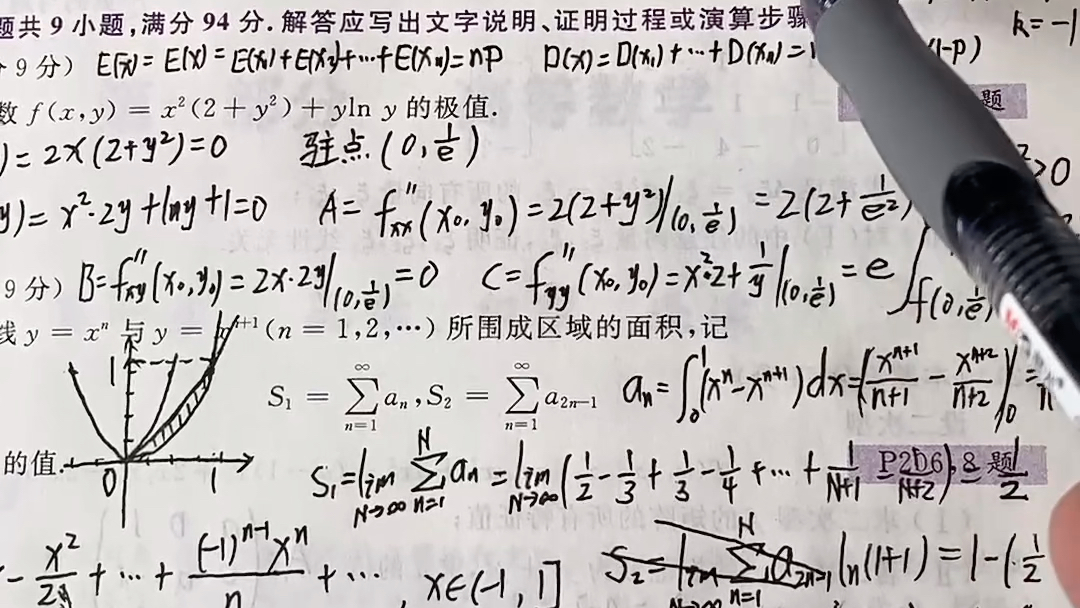 题共 9 小题,满分 94 分.解答应写出文字说明、证明过程或演算步骤
k=-1
9 分) E(x̄)=E(X)=E(X₁)+E(X₂)+⋯+E(Xₙ)=np D(X)=D(X₁)+⋯+D(Xₙ)= (1-p)
数 f(x,y) = x²(2+y²)+yln y 的极值. 题
)=2x(2+y²)=0 驻点(0,1/e)
>0
y)=x²·2y+lny+1=0 A=f″xx(x₀,y₀)=2(2+y²)|(0,1/e)=2(2+1/e²)
9 分) B=f″xy(x₀,y₀)=2x·2y|(0,1/e)=0 C=f″yy(x₀,y₀)=x²·2+1/y|(0,1/e)=e f(0,1/e)
线 y = xⁿ 与 y = xⁿ⁺¹ (n = 1,2,⋯) 所围成区域的面积,记
1
S₁ = ∑_{n=1}^{∞} aₙ, S₂ = ∑_{n=1}^{∞} a₂ₙ₋₁ aₙ=∫₀¹(xⁿ-xⁿ⁺¹)dx=(xⁿ⁺¹/(n+1) - xⁿ⁺²/(n+2))|₀¹=
的值.
0 1
S₁=lim_{N→∞} ∑_{n=1}^{N} aₙ=lim_{N→∞}(1/2-1/3+1/3-1/4+⋯+1/(N+1)-1/(N+2))=1/2
P206,8 题
-x²/2+⋯+(-1)ⁿ⁻¹xⁿ/n+⋯, x∈(-1,1] S₂=lim_{N→∞} ∑_{n=1}^{N} a₂ₙ₋₁ ln(1+1)=1-(1/2